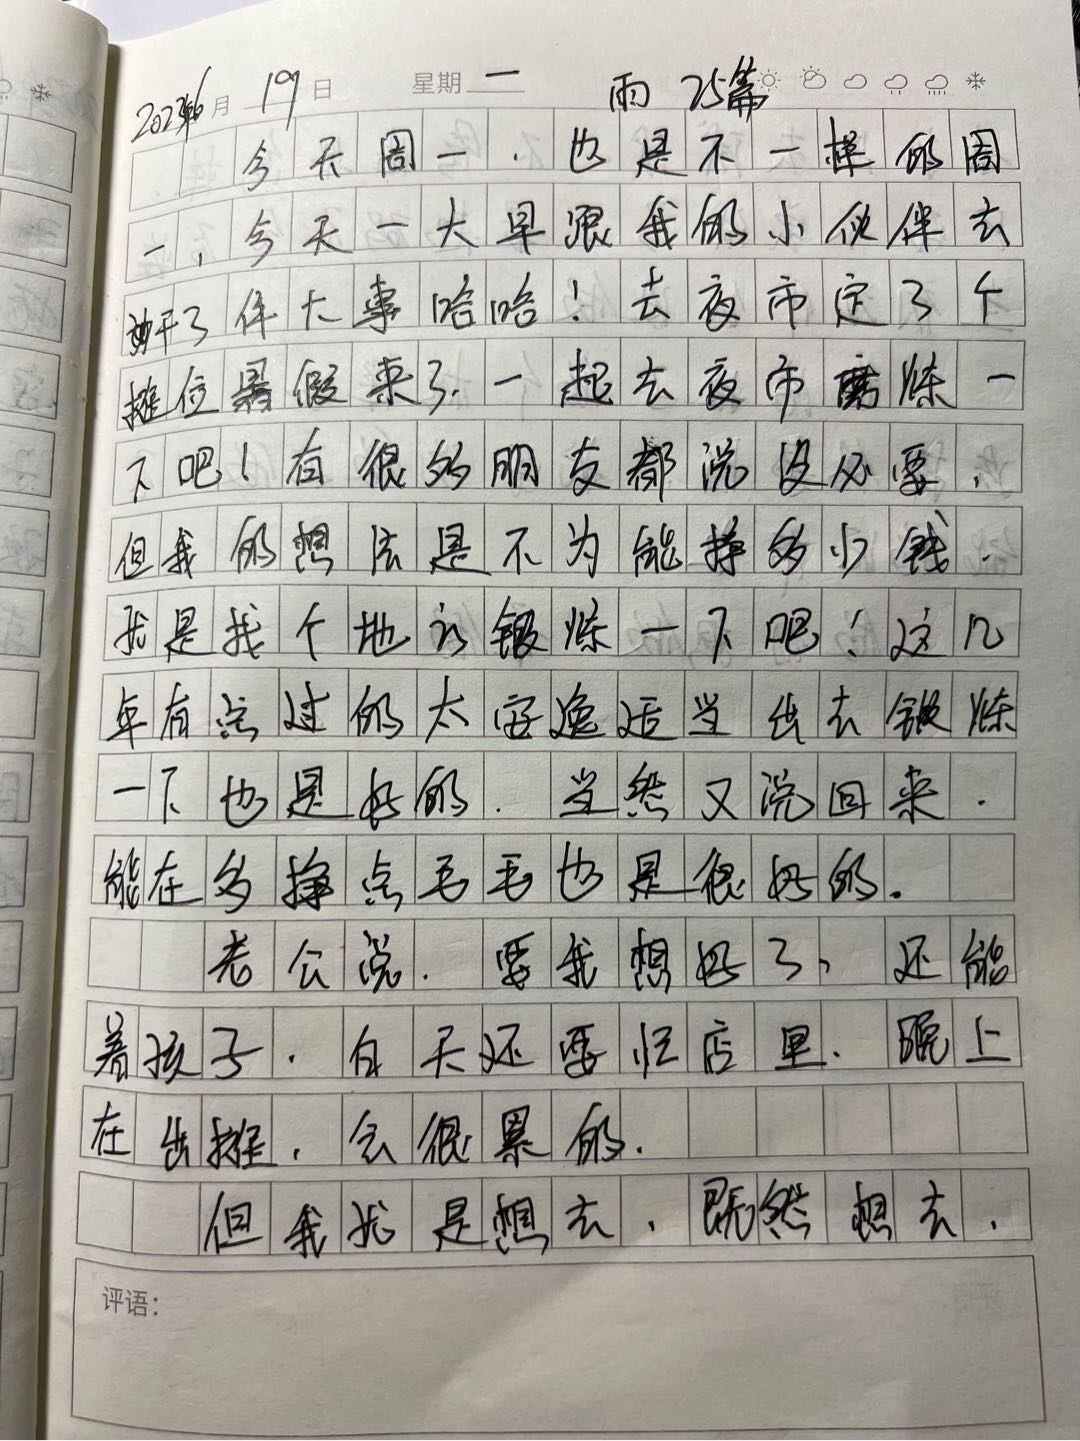 2023年6月19日 星期一 雨 25篇
今天周一.也是不一样的周
一，今天一大早跟我的小伙伴去
干了件大事哈哈！去夜市定了个
摊位暑假来了.一起去夜市锻炼一
下吧！有很多朋友都说没必要，
但我的想法是不为能挣多少钱.
就是找个地方锻炼一下吧！这几
年有点过的太安逸适当出去锻炼
一下也是好的.当然又说回来.
能在多挣点毛毛也是很好的.
老公说.要我想好了、还能
着孩子.白天还要忙店里.晚上
在出摊.会很累的.
但我就是想去.既然想去，
评语：